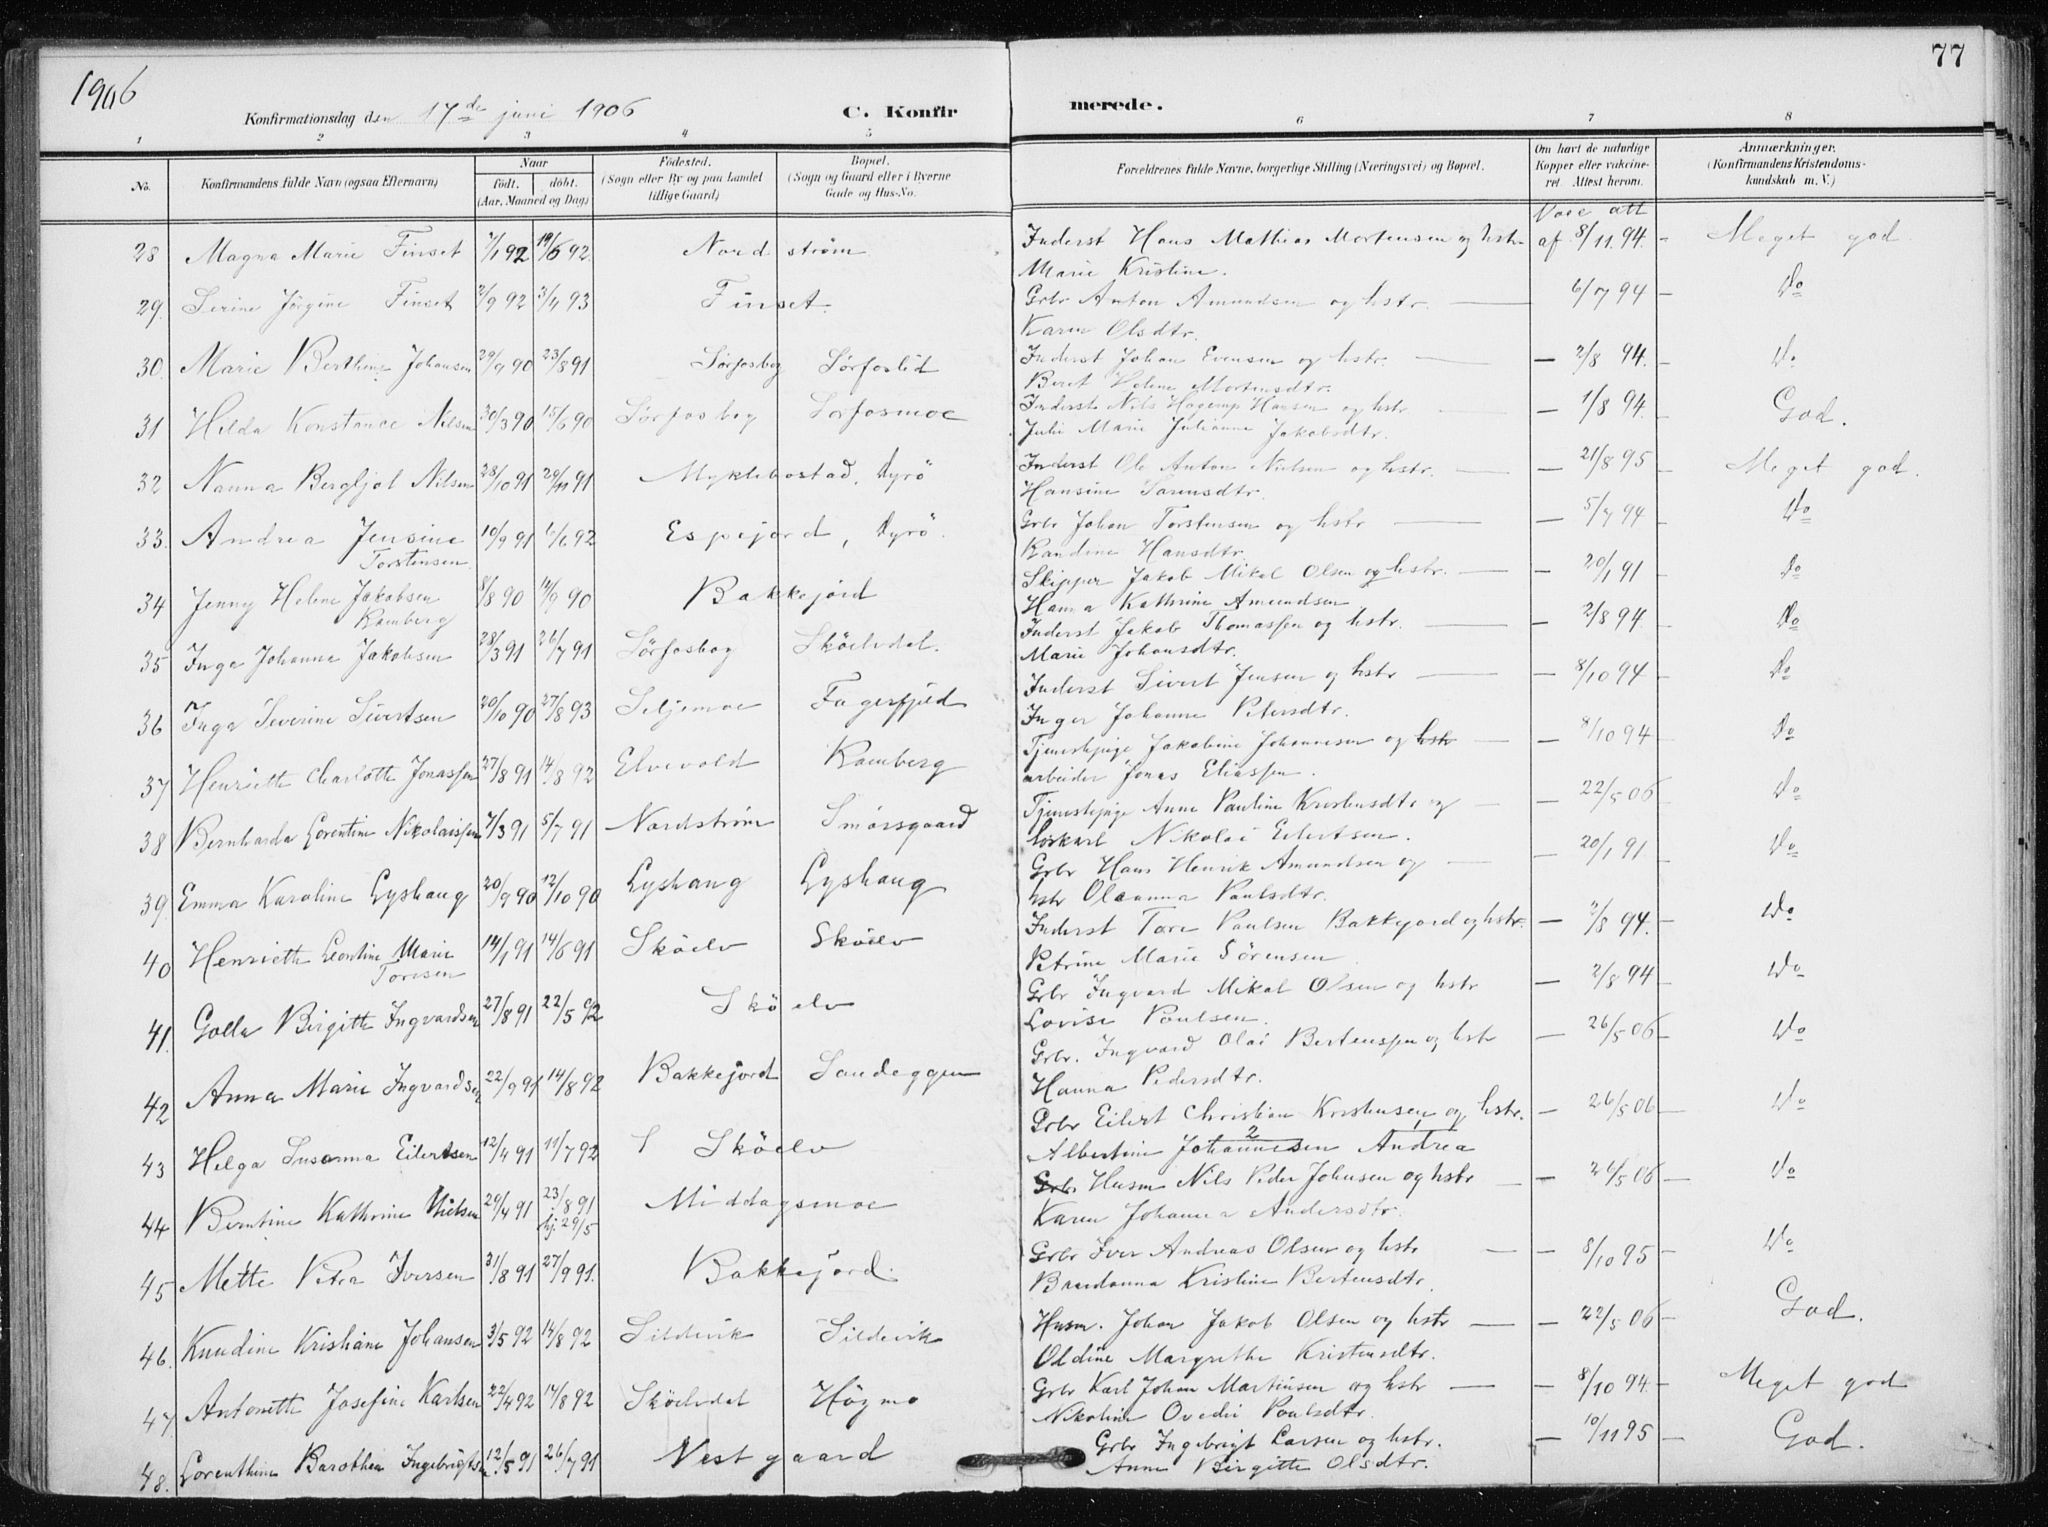 1906
77
Konfirmationsdag den 17de juni 1906
C. Konfirmerede.
1 2 3 4 5 6 7 8
No.
Konfirmandens fulde Navn (ogsaa Efternavn).
Naar
født. døbt.
(Aar, Maaned og Dag)
Fødested.
(Sogn eller By og paa Landet
tillige Gaard)
Bopæl.
(Sogn og Gaard eller i Byerne
Gade og Hus-No.
Forældrenes fulde Navne, borgerlige Stilling (Næringsvei) og Bopæl.
Om havt de naturlige
Kopper eller vakcine-
ret. Attest herom.
Anmærkninger.
(Konfirmandens Kristendoms-
kundskab m. V.)
28 Magna Marie Finset 7/1 92 19/6 92 Nordstrøm Inderst Hans Mathias Mortensen og hstr Vacc att af 8/11 94. – Meget god
Marie Kristine.
29. Serine Jørgine Finset 2/9 92 3/4 93 Finset Grbr Anton Amundsen og hstr. 6/7 94 – Do
Karen Olsdtr.
30. Marie Berthine Johansen 29/9 90 23/8 91 Sørfosbog Sørfoslid Inderst Johan Evensen og hstr. – 2/8 94. – Do
Beret Helene Mortensdtr.
31 Hilda Konstance Nilsen 30/3 90 15/6 90 Sørfosbog Sørfosmoe Inderst Nils Hansen og hstr – 1/8 94. – God.
Julie Marie Julianne Jakobsdtr.
32 Nanna Bergljot Nilsen 28/10 91 29/11 91 Myklebostad, Dyrö Inderst Ole Anton Nielsen og hstr. – 21/8 95 – Meget god.
Hansine Sørensdtr.
33. Andrea Jensine Torstensen 10/9 91 6/6 92 Espejord, Dyrö. Grbr Johan Torstensen og hstr – 5/7 94 – Do
Randine Hansdtr.
34 Jenny Helene Jakobsen Ramberg 8/8 90 14/9 90 Bakkejord Skipper Jakob Mikal Olsen og hstr. – 20/1 91 Do
Hanna Kathrine Amundsen
35 Inga Johanna Jakobsen 28/3 91 26/7 91 Sørfosbog Sköelvdal. Inderst Jakob Thomassen og hstr. – 2/8 94. – Do
Marie Johansdtr.
36 Inga Severine Sivertsen 20/10 90 27/8 93 Seljemoe Fagerfjeld Inderst Sivert Jensen og hstr – 8/10 94 – Do
Inger Johanne Petersdtr.
37 Henriette Charlotte Jonassen 27/8 91 14/8 92 Elvevold Ramberg Tjenestepige Jakobine Johannesen og hstr – 8/10 94 – Do
arbeider Jonas Eliassen.
38 Bernharda Lorentine Nikolaissen 7/3 91 5/7 91 Nordstrøm Smørsgaard Tjenestepige Anne Pauline Kristensdtr og – 22/5 06 – Do
løskarl Nikolai Eilertsen.
39. Emma Karoline Lyshaug 20/9 90 12/10 90 Lyshaug Lyshaug Grbr Hans Henrik Amundsen og – 20/1 91 – Do
hstr Oleanna Paulsdtr.
40 Henriette Leontine Marie Toresen 14/1 91 14/6 91 Sköelv Sköelv Inderst Tore Paulsen Bakkejord og hstr. – 2/8 94. – Do
Petrine Marie Sørensen
41. Golla Birgitte Ingvardsen 27/8 91 22/5 92 Sköelv Grbr Ingvard Mikal Olsen og hstr – 2/8 94 – Do
Lovise Paulsen.
42 Anna Marie Ingvardsen 22/9 91 14/8 92 Bakkejord Sandeggen Grbr. Ingvard Olai Bertensen og hstr – 26/5 06 – Do
Hanna Pedersdtr.
43 Helga Susanna Eilertsen 12/4 91 11/7 92 Sköelv Grbr Eilert Christian Kristensen og hstr. – 26/5 06 – Do
Albertine Johannesen Andrea
44 Berntine Kathrine Nielsen 29/4 91 23/8 91 hj. 29/5 Middagsmoe Grbr Husm Nils Peder Johnsen og hstr – 26/5 06 – Do
Karen Johanna Andersdtr.
45 Mette Petra Iversen 31/8 91 27/9 91. Bakkejord. Grbr Iver Andreas Olsen og hstr – 8/10 95 – Do
Kristine Bertensdtr.
46. Knudine Kristiane Johansen 3/5 92 14/8 92 Sildevik Sildevik Husm. Johan Jakob Olsen og hstr – 22/5 06 – God.
Oldine Margrethe Kristensdtr.
47. Antonette Josefine Karlsen 22/4 92 14/8 92 Sköelvdal Högmo Grbr Karl Johan Martinsen og hstr – 8/10 94. – Meget god
Nikoline Ovedie Paulsdtr.
48. Lorenthine Barothea Ingebrigtsen 12/5 91 26/7 91 Nestgaard Grbr Ingebrigt Larsen og hstr. – 10/11 95 – God.
Anne Birgitte Olsdtr.